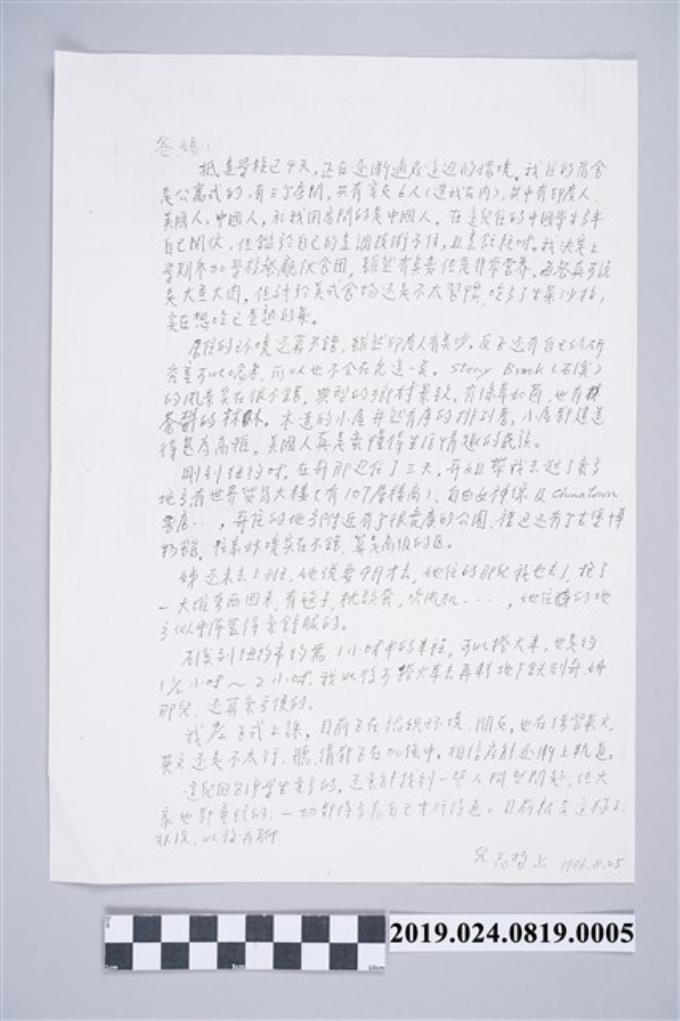 爸媽：
抵達學校已4天，正在逐漸適應這邊的環境。我住的宿舍
是公寓式的，有三个房間，共有室友6人（連我在内），其中有印度人
美國人，中國人，和我同房間的是中國人。在這兒住的中國學生多半
自己開伙，但鑑於自己的烹調技術不佳，且烹飪耗時。我決定上
學期參加學校餐廳伙食團，雖然有點貴但是非常營养，每餐在可說
是大魚大肉，但對於美式食物还是不太習慣，吃多了生菜沙拉，
实在想吃已煮熟的菜。
居住的环境还算不錯，雖然印度人有点吵。反正还有自己的研
究室可以唸書，所以也不会在意這一点。Stony Brook（石溪）
的風景实在很不錯，典型的鄉村景致，有綠草如茵，也有
蒼鬱的林木。木造的小屋井然有序的排列着，小屋都建造
得甚為高雅，美國人真是蠻懂得生活情趣的民族。
剛到紐約时，在哥那边住了三天，哥姐帶我去逛了蠻多
地方有世界貿易大樓（有107層樓高）、自由女神像及Chinatown
書店…，哥住的地方附近有个很寬廣的公園，裡边还有个古堡博
物館，住家环境实在不錯，算是高級的区。
姊还未去上班，她說要9月才去，她住的那兒我也去了，搶了
一大堆東西回來，有毯子，枕頭套，吹風机……，她住的地
方似乎佈置得蠻舒服的。
石溪到紐約市約需1小时半的車程。可以搭火車，也是約
1½小时～2小时，我以後可搭火車去再轉地下鉄到哥、姊
那兒，还算蠻方便的。
我尚未正式上課，目前正在認識环境、朋友，也在練習英文，
英文还是不太行，聽、講都正在加強中，相信應能逐漸上軌道。
這兒因台灣學生蠻多的，还蠻能找到一些人問些問題，但大
家也都蠻忙的，一切都得靠自己才行得通。目前就是這樣的
狀況，以後再聊
兒志哲上 1986.8.25
2019.024.0819.0005